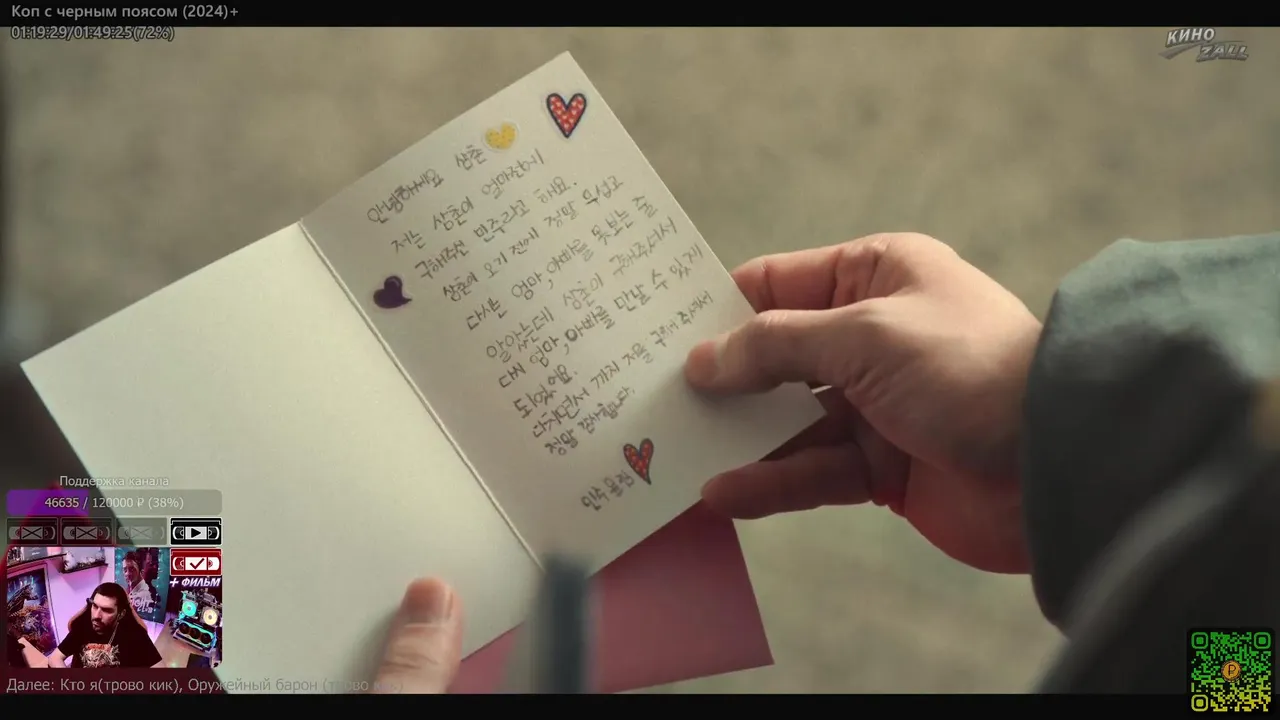 Коп с черным поясом (2024)+
01:19:29/01:49:25(72%)
КИНО
ZALL
안녕하세요 삼촌
저는 삼촌이 엄마전에
구해주신 민주라고 해요.
삼촌이 오기 전에 정말 무섭고
다시는 엄마, 아빠를 못보는 줄
알았는데 삼촌이 구해주셔서
다시 엄마, 아빠를 만날 수 있게
되었어요.
다치면서 까지 저를 구해 주셔서
정말 감사합니다.
민주 올림
Поддержка канала
46635 / 120000 ₽ (38%)
+ ФИЛЬМ
Далее: Кто я(трово кик), Оружейный барон (трово кик)